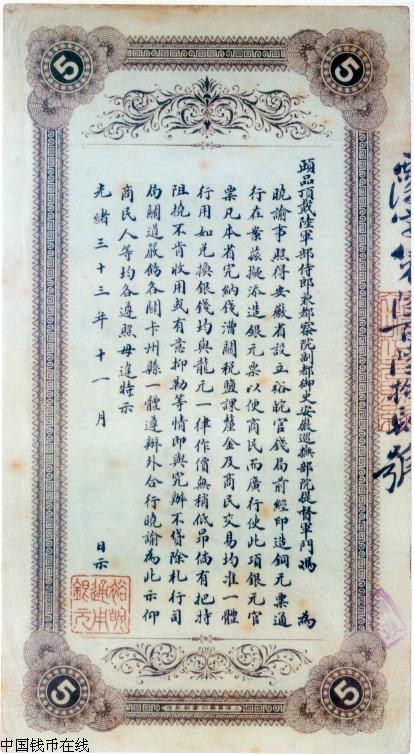 5
5
頭品頂戴陸軍部侍郎兼都察院副都御史安徽巡撫部院提督軍門馮 為
曉諭事照得安徽省設立裕皖官錢局前經印造銅元票通
行在案茲擬添造銀元票以便商民而廣行使此項銀元官
票凡本省完納錢漕關稅鹽課釐金及商民交易均准一體
行用如兌換銀錢均與龍元一律作價無稍低昂倘有把持
阻撓不肯收用或有意抑勒等情即與究辦不貸除札行司
局關道嚴飭各關卡州縣一體遵辦外合行曉諭為此示仰
商民人等均各遵照毋違特示
光緒三十三年十一月 日示
裕皖
通用
銀元
號
5
5
中国钱币在线